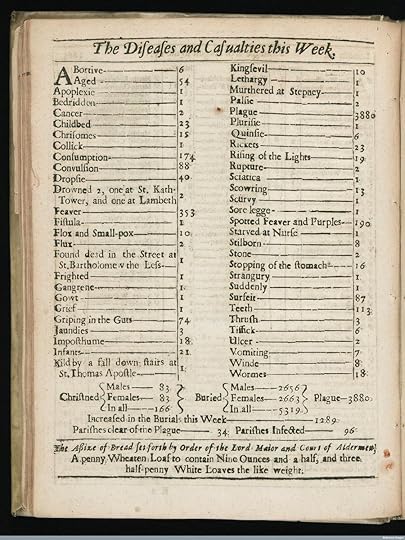 The Diſeaſes and Caſualties this Week.
ABortive 6
Aged 54
Apoplexie 1
Bedridden 1
Cancer 2
Childbed 23
Chriſomes 15
Collick 1
Conſumption 174
Convulſion 88
Dropſie 40
Drowned 2, one at St. Kath-
Tower, and one at Lambeth 2
Feaver 353
Fiſtula 1
Flox and Small-pox 10
Flux 2
Found dead in the Street at
St. Bartholomew the Leſs 1
Frighted 1
Gangrene 1
Gowt 1
Grief 1
Griping in the Guts 74
Jaundies 3
Impoſthume 18
Infants 21
Kild by a fall down ſtairs at
St. Thomas Apoſtle 1
Kingſevil 10
Lethargy 1
Murthered at Stepney 1
Palſie 2
Plague 3880
Pluriſie 1
Quinſie 6
Rickets 23
Riſing of the Lights 19
Rupture 2
Sciatica 1
Scowring 13
Scurvy 1
Sore legge 1
Spotted Feaver and Purples 190
Starved at Nurſe 1
Stilborn 8
Stone 2
Stopping of the ſtomach 16
Strangury 1
Suddenly 1
Surfeit 87
Teeth 113
Thruſh 3
Tiſſick 6
Ulcer 2
Vomiting 7
Winde 8
Wormes 18
Chriſtned Males 83 Females 83 In all 166 Buried Males 2656 Females 2663 In all 5319 Plague 3880
Increaſed in the Burials this Week 1289
Pariſhes clear of the Plague 34 Pariſhes Infected 96
The Aſſize of Bread ſet forth by Order of the Lord Maior and Court of Aldermen,
A penny Wheaten Loaf to contain Nine Ounces and a half, and three
half-penny White Loaves the like weight.